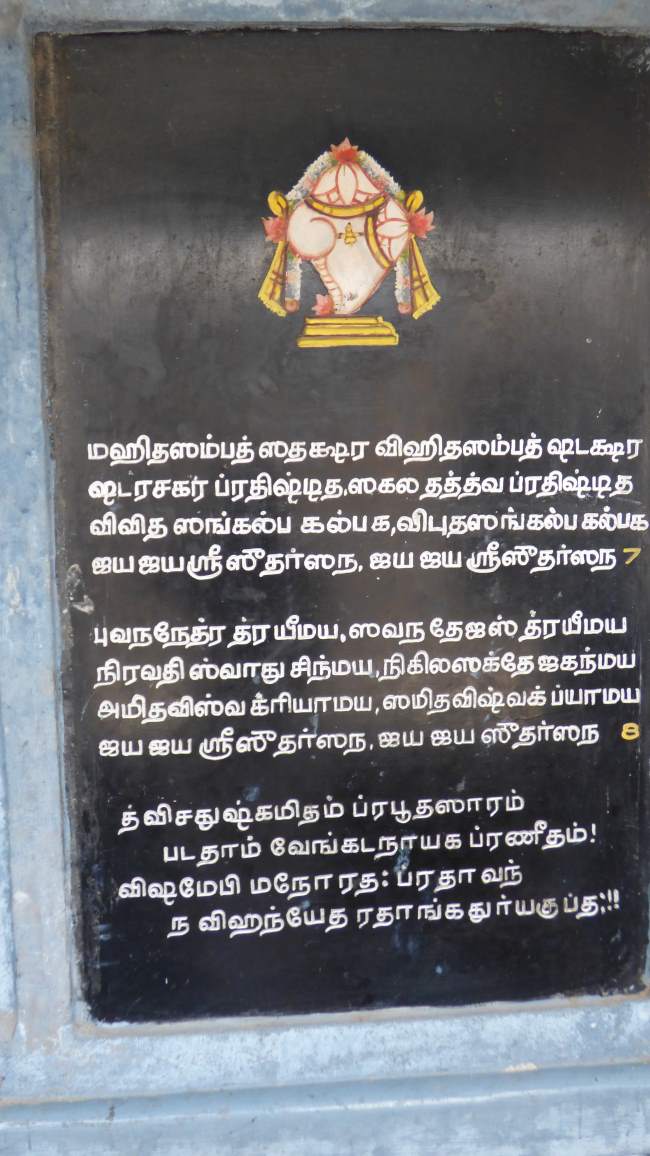 மஹிதஸம்பத் ஸதக்ஷர விஹிதஸம்பத் ஷடக்ஷர
ஷடரசகர் ப்ரதிஷ்டித,ஸகல தத்த்வ ப்ரதிஷ்டித
விவித ஸங்கல்ப கல்பக,விபுதஸங்கல்ப கல்பக
ஜய ஜய ஸ்ரீ ஸுதர்ஸந, ஜய ஜய ஸ்ரீஸுதர்ஸந 7
புவநநேத்ர த்ரயீமய,ஸவந தேஜஸ் த்ரயீமய
நிரவதி ஸ்வாது சிந்மய,நிகிலஸக்தே ஜகந்மய
அமிதவிஸ்வ க்ரியாமய,ஸமிதவிஷ்வக் ப்யாமய
ஜய ஜய ஸ்ரீஸுதர்ஸந, ஜய ஜய ஸுதர்ஸந 8
த்விசதுஷ்கமிதம் ப்ரபூதஸாரம்
படதாம் வேங்கடநாயக ப்ரணீதம்!
விஷமேபி மநோரத: ப்ரதாவந்
ந விஹந்யேத ரதாங்கதுர்யகுப்த:!!